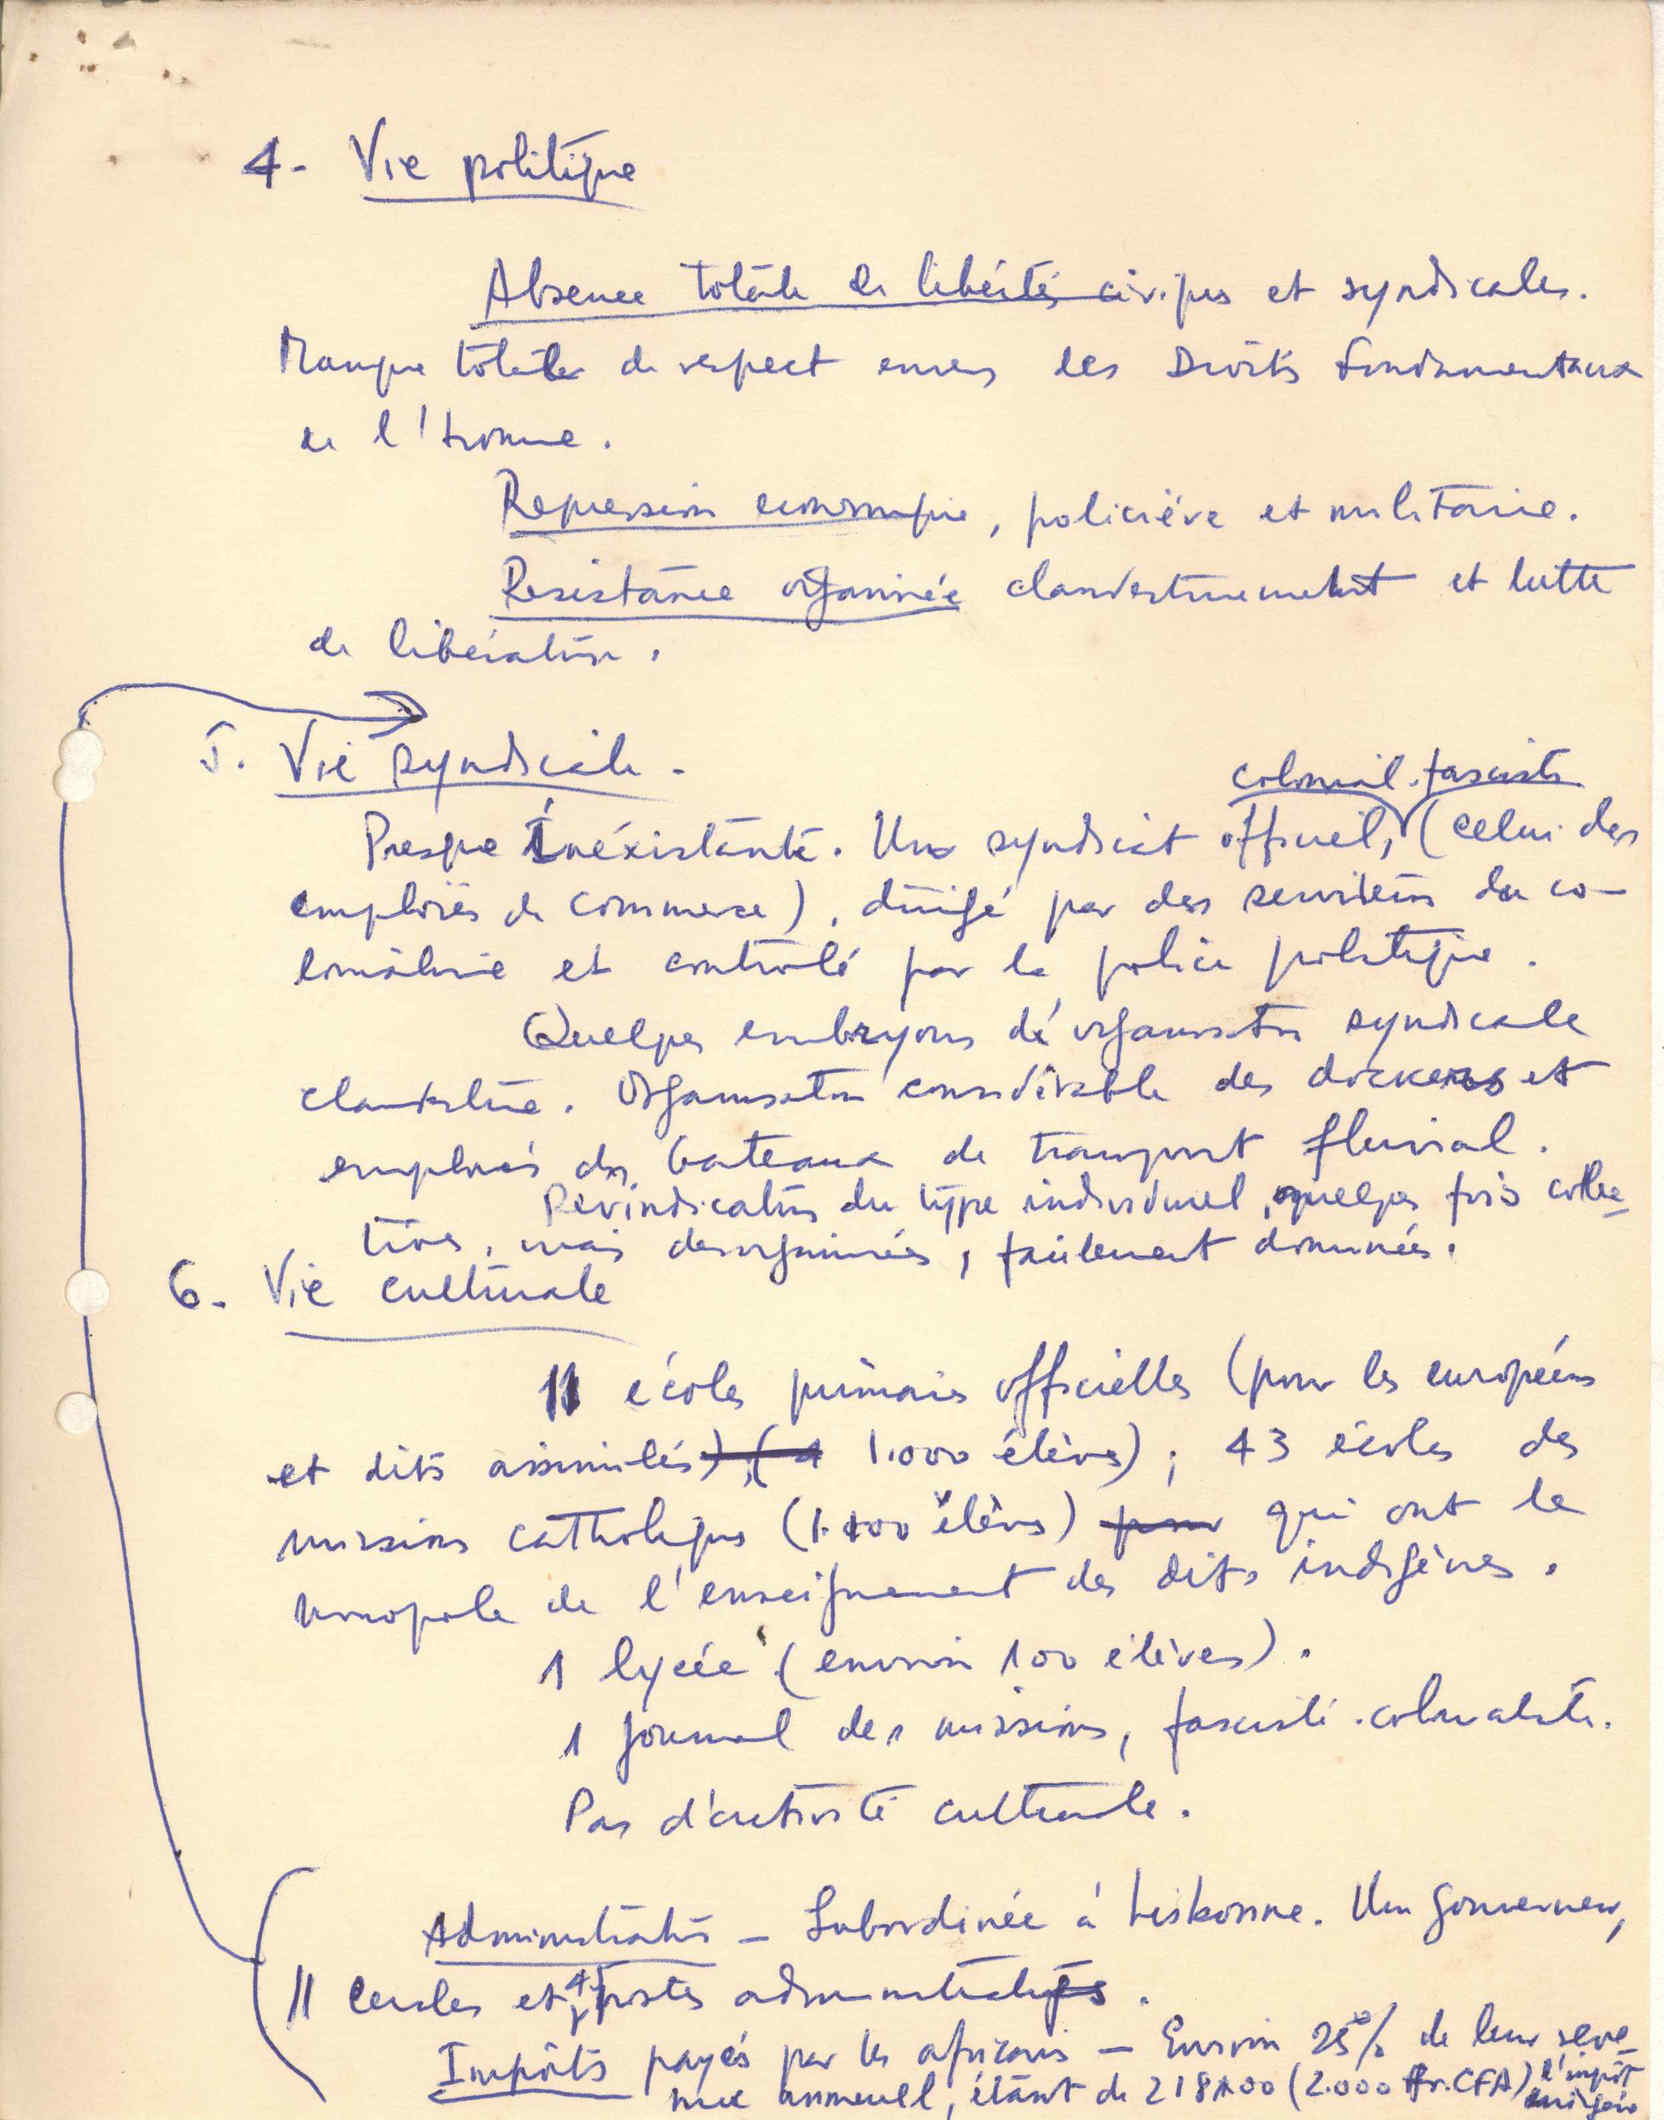 4. Vie politique
Absence totale de libertés civiques et syndicales.
Manque totale de respect envers les Droits fondamentaux
de l'homme.
Repression economique, policière et militaire.
Resistance organisée clandestinement et lutte
de libération.
5. Vie syndicale.
colonial-fasciste
Presque Inéxistante. Un syndicat officiel, (celui des
employés de commerce), dirigé par des serviteurs du co-
lonialisme et controlé par la police politique.
Quelques embryons d'organisation syndicale
clandestine. Organisation considérable des dockers et
employés des bateaux de transport fluvial.
Révindications du type individuel, quelques fois collec-
tives, mais desorganisées, facilement dominées.
6. Vie culturale
11 écoles primaires officielles (pour les européens
et dits assimilés), (1 1.000 élèves); 43 écoles des
missions catholiques (1.100 élèves) pour qui ont le
monopole de l'enseignement des dits indigènes.
1 lycée (environ 100 élèves).
1 journal des missions, fasciste-colonialiste.
Pas d'activité culturale.
Administration - Subordinée à Lisbonne. Un Gouverneur,
11 Cercles et 4 postes administratifs.
Impôts payés par les africains - Environ 25% de leur reve-
nue annuell, étant de 218$00 (2.000 fr.CFA) l'impôt
indigène